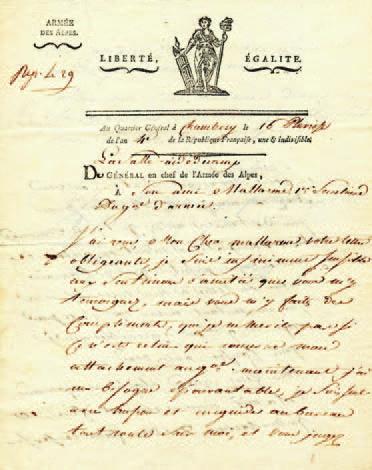 ARMÉE
DES ALPES.
LIBERTÉ, ÉGALITÉ.
Rep. le 29
Au Quartier Général à Chambery le 16 Pluviose
de l'an 4e de la République Française, une & indivisible.
aide de camp
DU GÉNÉRAL en chef de l'Armée des Alpes,
À Son ami Mallarmé 1er Secrétaire
Du gal d'armée.
J'ai reçu, Mon Cher mallarmé votre lettre
obligeante, je suis infiniment sensible
aux Sentimens d'amitié que vous m'y
temoignez, mais vous m'y faites des
Complements, qui je ne merite pas si
ce n'est celui que
attachement au gal. maintenant j'ai
un besogne épouvantable, je suis seul
au bureau
tout roule sur moi, et vous jugez